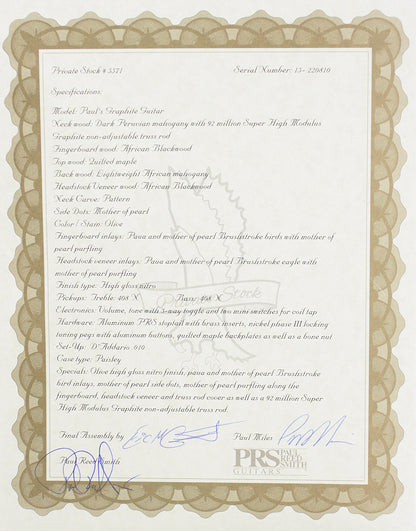 Private Stock # 5571 Serial Number: 15- 220810
Specifications:
Model: Paul's Graphite Guitar
Neck wood: Dark Peruvian mahogany with 92 million Super High Modulus
Graphite non-adjustable truss rod
Fingerboard wood: African Blackwood
Top wood: Quilted maple
Back wood: Lightweight African mahogany
Headstock Veneer wood: African Blackwood
Neck Carve: Pattern
Side Dots: Mother of pearl
Color / Stain: Olive
Fingerboard inlays: Paua and mother of pearl Brushstroke birds with mother of
pearl purfling
Headstock veneer inlays: Paua and mother of pearl Brushstroke eagle with
mother of pearl purfling
Finish type: High gloss nitro
Pickups: Treble: 408 X Bass: 408 X
Stock
Electronics: Volume, tone with 3-way toggle and two mini switches for coil tap
Hardware: Aluminum PRS stoptail with brass inserts, nickel phase III locking
tuning pegs with aluminum buttons, quilted maple backplates as well as a bone nut
Set-Up: D'Addario .010
Case type: Paisley
Specials: Olive high gloss nitro finish, paua and mother of pearl Brushstroke
bird inlays, mother of pearl side dots, mother of pearl purfling along the
fingerboard, headstock veneer and truss rod cover as well as a 92 million Super
High Modulus Graphite non-adjustable truss rod.
Final Assembly by
Paul Miles
Paul Reed Smith
PRS PAUL
REED
SMITH
GUITARS